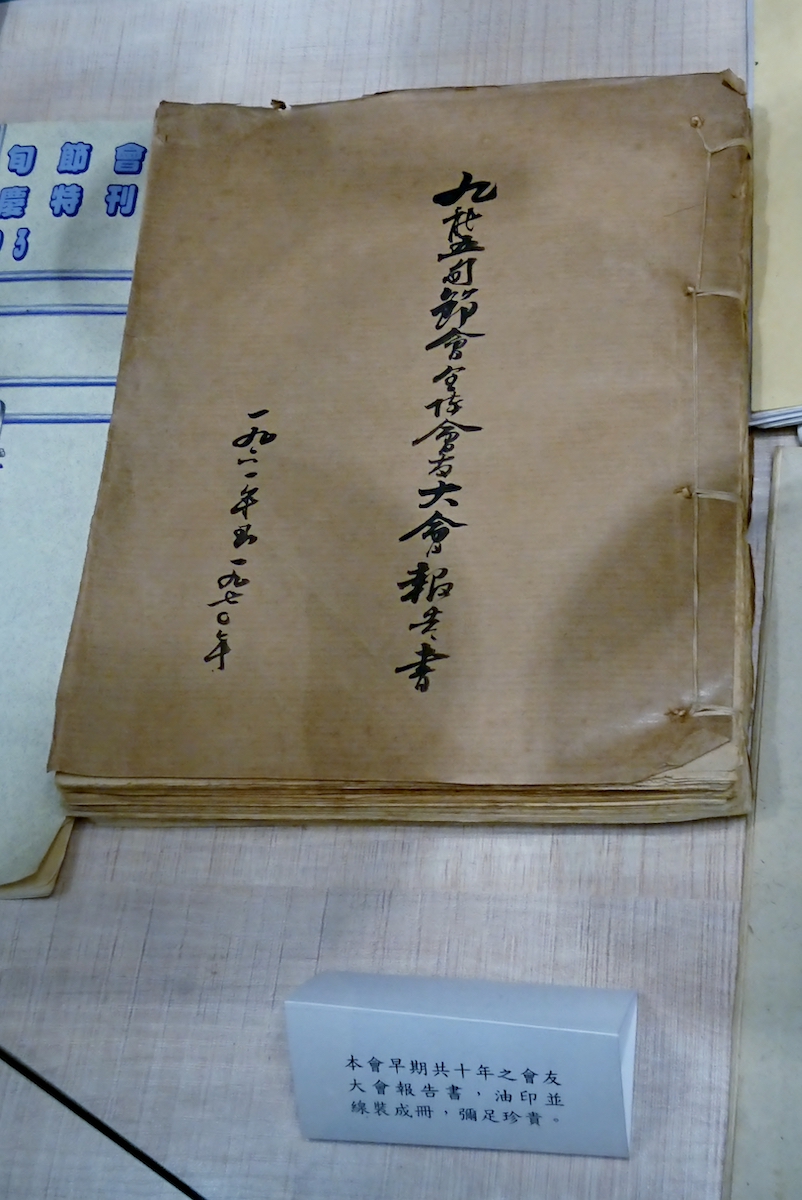 九龍五旬節會全体會友大會報告書
一九六一年至一九七〇年
旬節會
慶特刊
3
本會早期共十年之會友
大會報告書，油印並
線裝成冊，彌足珍貴。